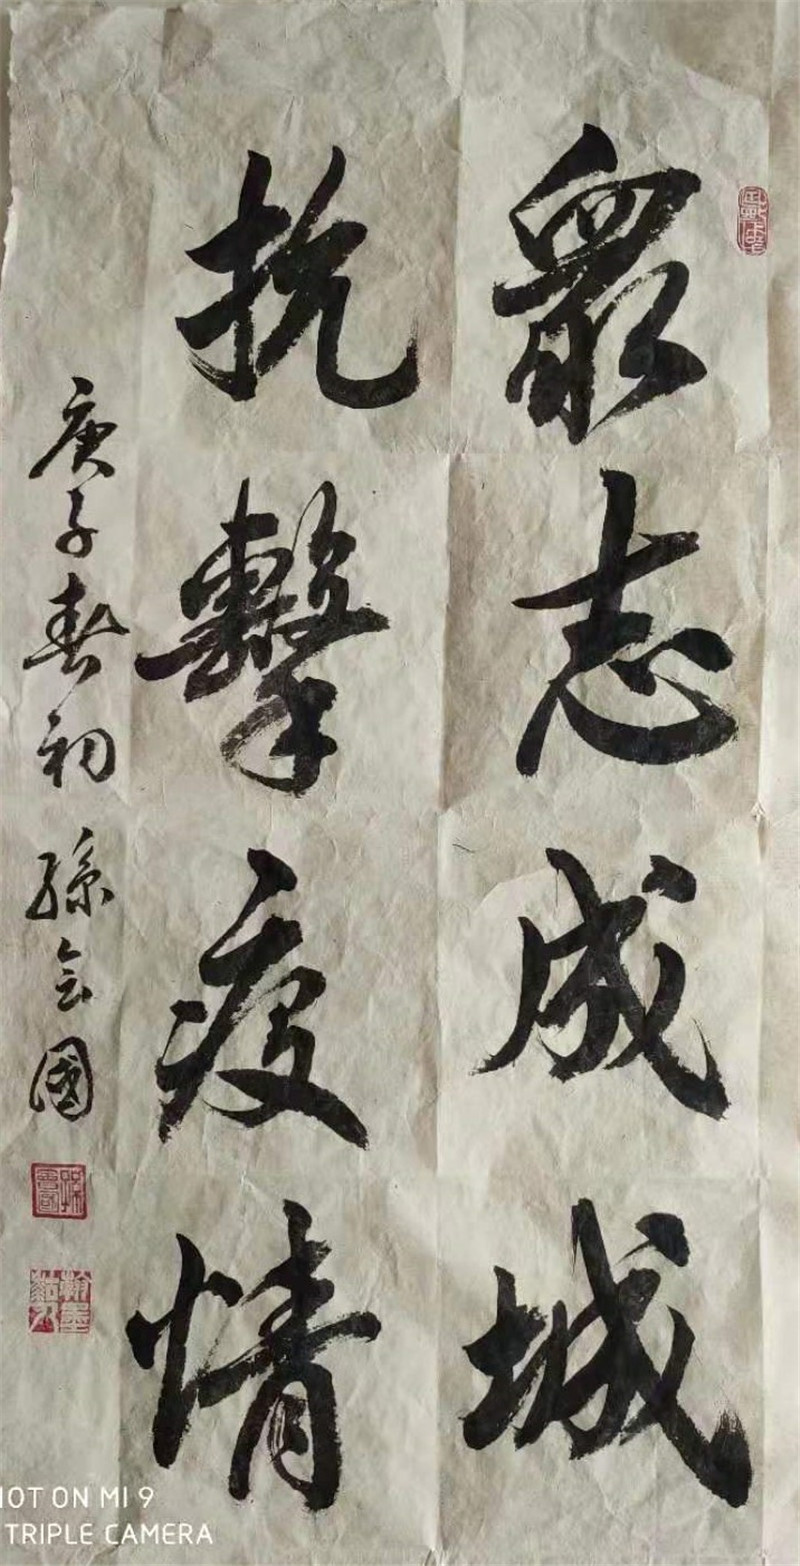 眾志成城
抗擊疫情
庚子春初 孫会國
翰墨
HOT ON MI 9
TRIPLE CAMERA